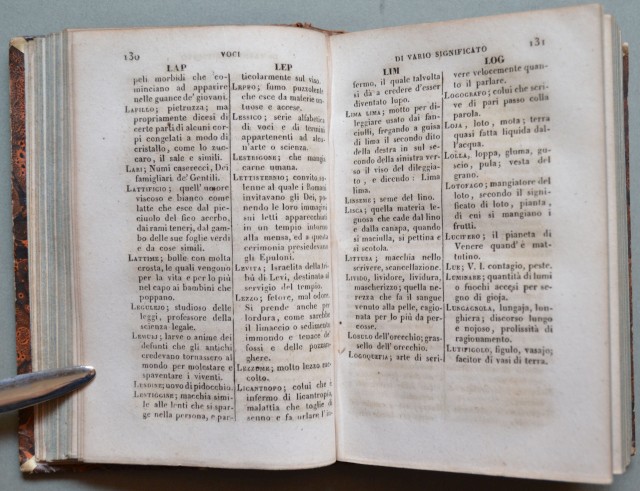 130
VOCI
LAP
peli morbidi che co-
minciano ad apparire
nelle guance de' giovani.
LAPILLO; pietruzza; ma
propriamente dicesi di
certe parti di alcuni cor-
pi congelati a modo di
cristallo, come lo zuc-
caro, il sale e simili.
LARI; Numi caserecci, Dei
famigliari de' Gentili.
LATTIFICIO; quell' umore
viscoso e bianco come
latte che esce dal pic-
ciuolo del fico acerbo,
dai rami teneri, dal gam-
bo delle sue foglie verdi
e da cose simili.
LATTIME; bolle con molta
crosta, le quali vengono
per la vita e per lo più
nel capo ai bambini che
poppano.
LEGULEIO; studioso delle
leggi, professore della
scienza legale.
larve o anime dei
defunti che gli antichi
credevano tornassero al
mondo per molestare e
spaventare i viventi.
LENDINE; uovo di pidocchio.
LENTIGGINE; macchia simi-
le alle lenti che si spar-
ge nella persona, e par-
LEP
ticolarmente sul viso.
LEPPO; fumo puzzolente
che esce da materie un-
tuose e accese.
LESSICO; serie alfabetica
di voci e di termini
appartenenti ad alcu-
n'arte o scienza.
LESTRIGONE; che mangia
carne umana.
LETTISTERNIO; convito so-
lenne al quale i Romani
invitavano gli Dei, po-
nendo le loro immagini
sui letti apparecchiati
in un tempio intorno
alla mensa, ed a questa
cerimonia presiedevano
gli Epuloni.
LEVITA; Israelita della tri-
bù di Levi, destinato al
servigio del tempio.
LEZZO; fetore, mal odore.
Si prende anche per
lordura, come sarebbe
il linaccio o sedimento
immondo e tenace de'
fossi e delle pozzan-
ghere.
LEZZUME; molto lezzo rac-
colto.
LICANTROPO; colui che è
infermo di licantropia,
malattia che toglie il
senno e fa urlare l'in-
DI VARIO SIGNIFICATO
131
LIM
fermo, il quale talvolta
si dà a credere d'esser
diventato lupo.
LIMA LIMA; motto per di-
leggiare usato dai fan-
ciulli, fregando a guisa
di lima il secondo dito
della destra in sul se-
condo della sinistra ver-
so il viso del dileggia-
to, e dicendo: Lima
lima.
LINSEME; seme del lino.
LISCA; quella materia le-
gnosa che cade dal lino
e dalla canapa, quando
si maciulla, si pettina e
si scotola.
LITTURA; macchia nello
scrivere, scancellazione.
LIVIDO, lividore, lividura,
mascherizzo; quella ne-
rezza che fa il sangue
venuto alla pelle, ragu-
nata per lo più da per-
cosse.
LOBULO dell'orecchio; gras-
sello dell'orecchio.
LOGOGRIFIA; arte di scri-
LOG
vere velocemente quan-
to il parlare.
LOGOGRAFO; colui che scri-
ve di pari passo colla
parola.
LOJA, loto, mota; terra
quasi fatta liquida dal-
l'acqua.
LOLLA, loppa, gluma, gu-
scio, pula; vesta del
grano.
LOTOFAGO; mangiatore del
loto, secondo il signi-
ficato di loto, pianta,
di cui si mangiano i
frutti.
LUCIFERO; il pianeta di
Venere quand' è mat-
tutino.
LUE; V. L contagio, peste.
LUMINARE; quantità di lumi
o fuochi accesi per se-
gno di gioja.
LUNGAGNOLA, lungaja, lun-
ghiera; discorso lungo
e nojoso, prolissità di
ragionamento.
LUTIFIGOLO, figulo, vasajo;
facitor di vasi di terra.